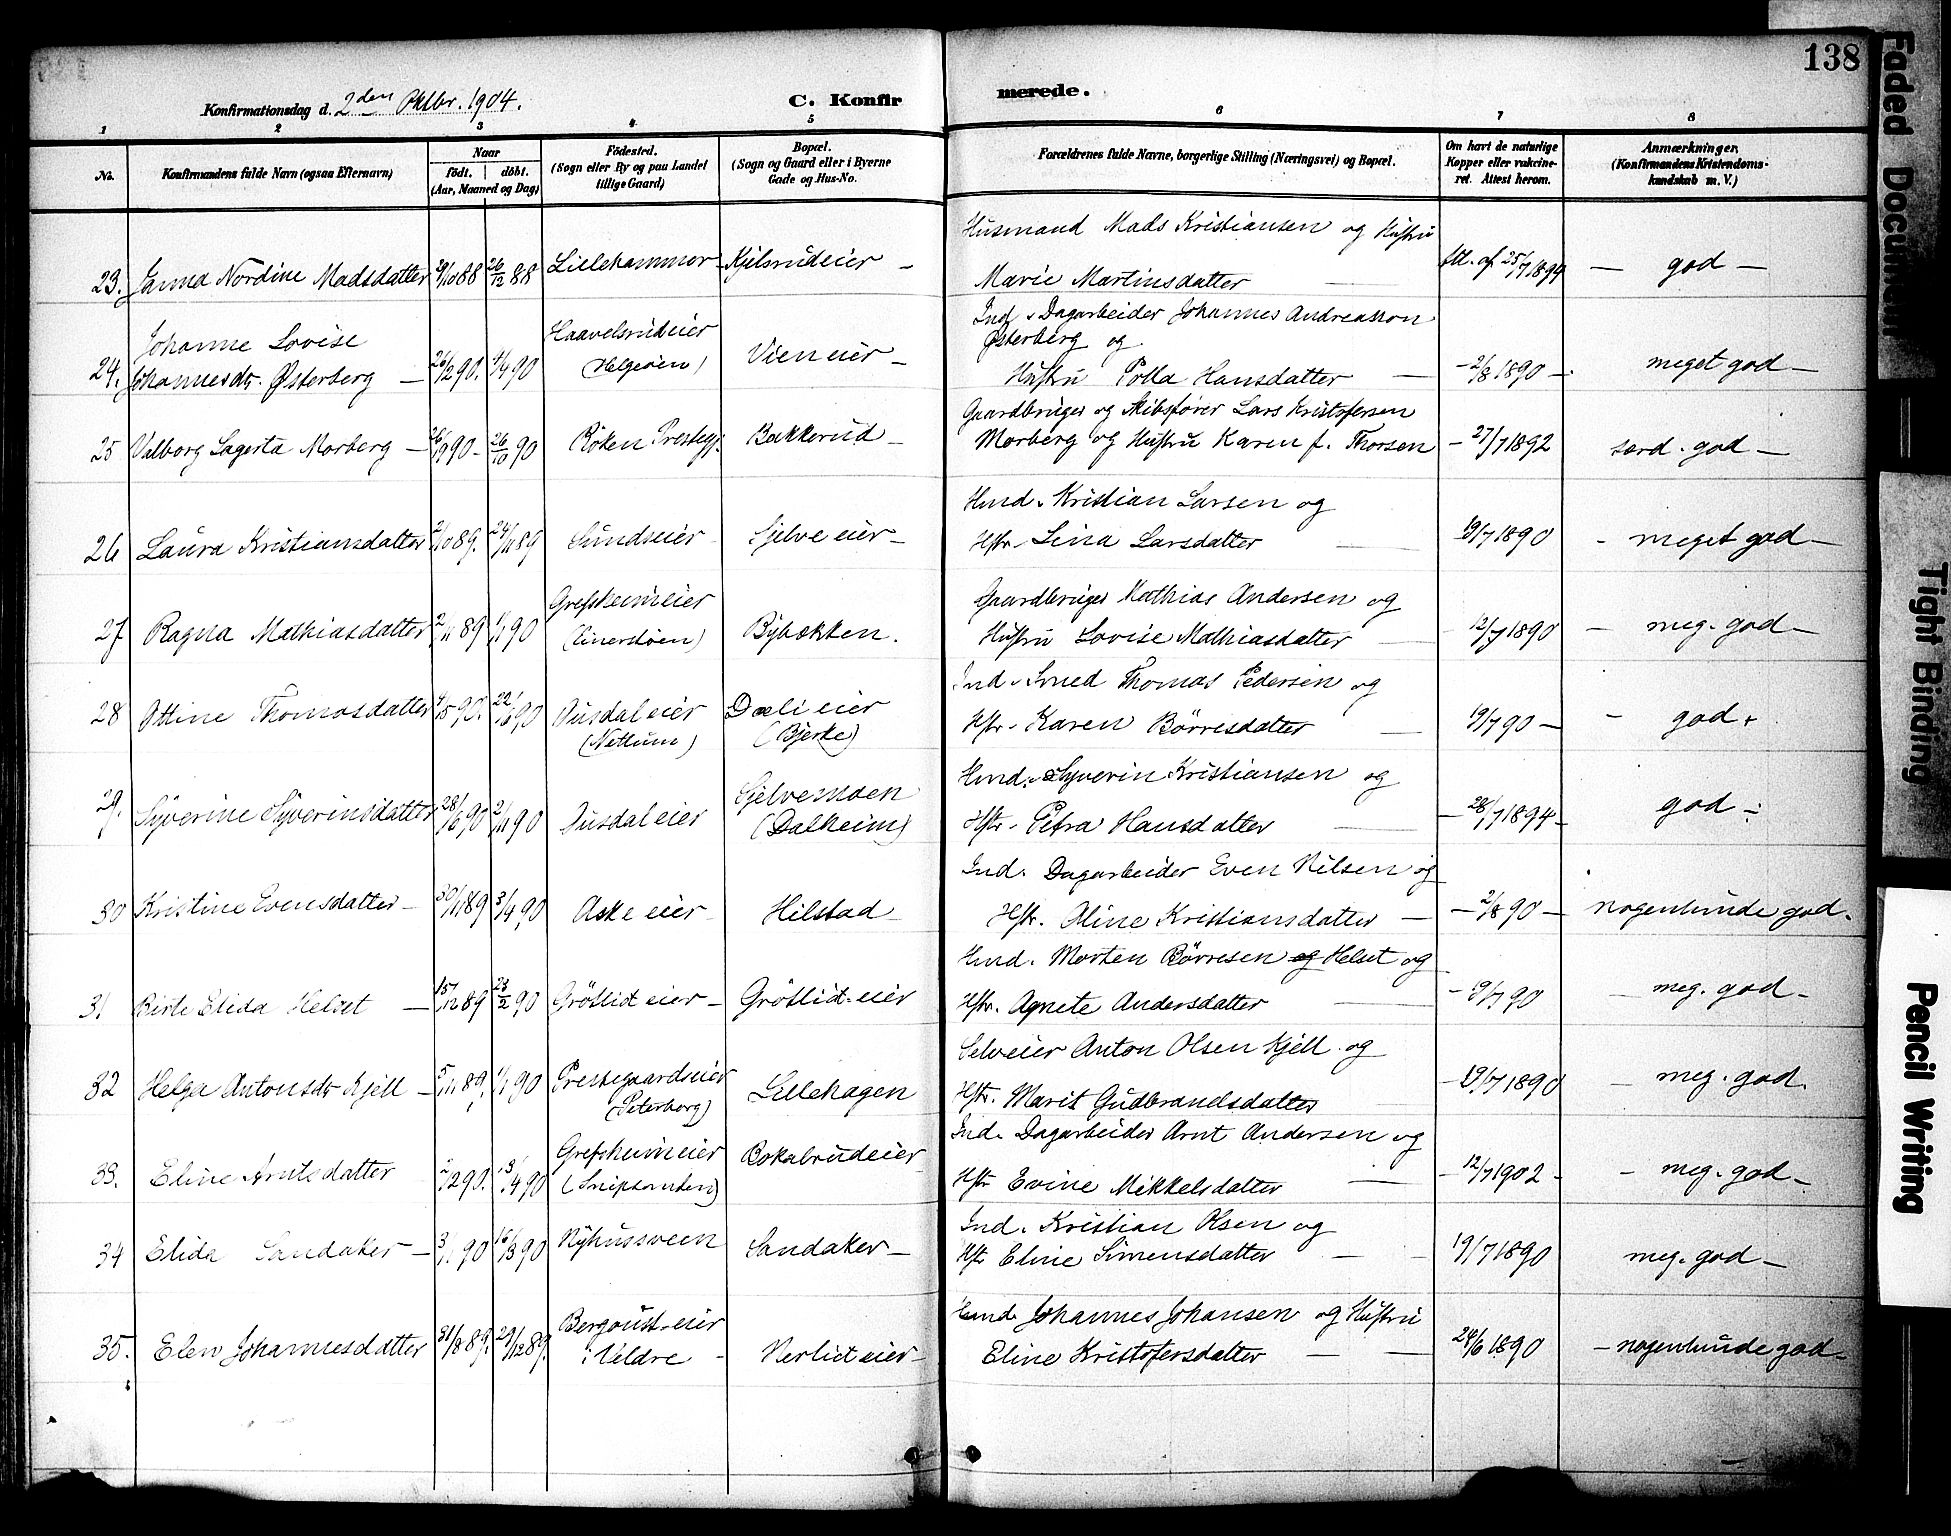 138
Konfirmationsdag d. 2den Oktbr. 1904.
C. Konfirmerede.
1 2 3 4 5 6 7 8
No.
Konfirmandens fulde Navn (ogsaa Efternavn)
Naar
født. døbt.
(Aar, Maaned og Dag)
Fødested.
(Sogn eller By og paa Landet
tillige Gaard)
Bopæl.
(Sogn og Gaard eller i Byerne
Gade og Hus-No.
Forældrenes fulde Navne, borgerlige Stilling (Næringsvei) og Bopæl.
Om havt de naturlige
Kopper eller vakcine-
ret. Attest herom.
Anmærkninger.
(Konfirmandens Kristendoms-
kundskab m. V.)
Husmand Mads Kristiansen og Hustru
23. Janna Nordine Madsdatter 29/10 88 26/12 88 Lillehammer Kjelsrudeier – Marie Martinsdatter Att. af 25/7 1894 – god –
Ind. Dagarbeider Johannes Andreasson
Johanne Lovise Haavelsrudeier Østerberg og
24. Johannesdtr. Østerberg – 26/2 90. 4/4 90 (Helgøen) Vien eier – Hustru Polla Hansdatter – 2/8 1890 – meget god –
Gaardbruger og Skibsfører Lars Kristofersen
25 Valborg Lagerta Morberg – 26/9 90 – 26/10 90 Røken Prestegj. Bakkerud – Morberg og Hustru Karen f. Thorsen – 27/7 1892 særd. god –
Hmd. Kristian Larsen og
26 Laura Kristiansdatter 2/10 89. 24/11 89 Sundseier Sjelve eier – Hstr. Lina Larsdatter 19/7 1890 – meget god –
Grefsheimeier Gaardbruger Mathias Andersen og
27 Ragna Mathiasdatter 2/11 89 1/1 90 (Einersløen) Bybækken. Hustru Lovise Mathiasdatter 12/7 1890 – meg. god –
Ind. Smed Thomas Pedersen og
28 Ottine Thomasdatter 4/5 90. 22/6 90 Ausdal eier Dæli eier Hstr. Karen Børresdatter 19/7 90 – god +
(Nettum) (Bjerke)
Hmd. Syverin Kristiansen og
29. Syverine Syverinsdatter 28/6 90 2/11 90 Ausdal eier Sjelvemoen Hstr. Petra Hansdatter – 28/7 1894 – god ÷
(Dalheim)
Ind. Dagarbeider Even Nilsen og
30 Kristine Evensdatter – 30/11 89 3/4 90 Aske eier Hilstad Hstr. Aline Kristiansdatter – 2/8 90 – nogenlunde god.
Hmd. Morten Børresen og Helset og
31 Birte Elida Helset – 15/12 89 23/2 90 Grøtlid eier – Grøtlid-eier Hstr. Agnete Andersdatter – 19/7 90 – meg. god –
Selveier Anton Olsen Kjell og
32 Helga Antonsdtr Kjell – 5/11 89. 1/1 90 Prestegaardseier Lillehagen Hstr. Marit Gudbrandsdatter – 19/7 1890 – meg. god.
(Peterborg)
Ind. Dagarbeider Arnt Andersen og
33. Eline Arntsdatter 2/2 90. 13/4 90 Grefsheimeier Bokalrudeier Hstr Evine Mikkelsdatter – 12/7 1902 – meg. god –
Ind. Kristian Olsen og
34 Elida Sandaker – 3/1 90 16/3 90 Nyhussveen Sandaker – Hstr Eline Simensdatter 19/7 1890 meg. god –
Hmd. Johannes Johansen og Hustru
35. Elen Johannesdatter 31/8 89. 29/12 89. Bergoust-eier Nerlid eier – Eline Kristofersdatter 24/6 1890 – nogenlunde god –
i Veldre
Faded Document
Tight Binding
Pencil Writing